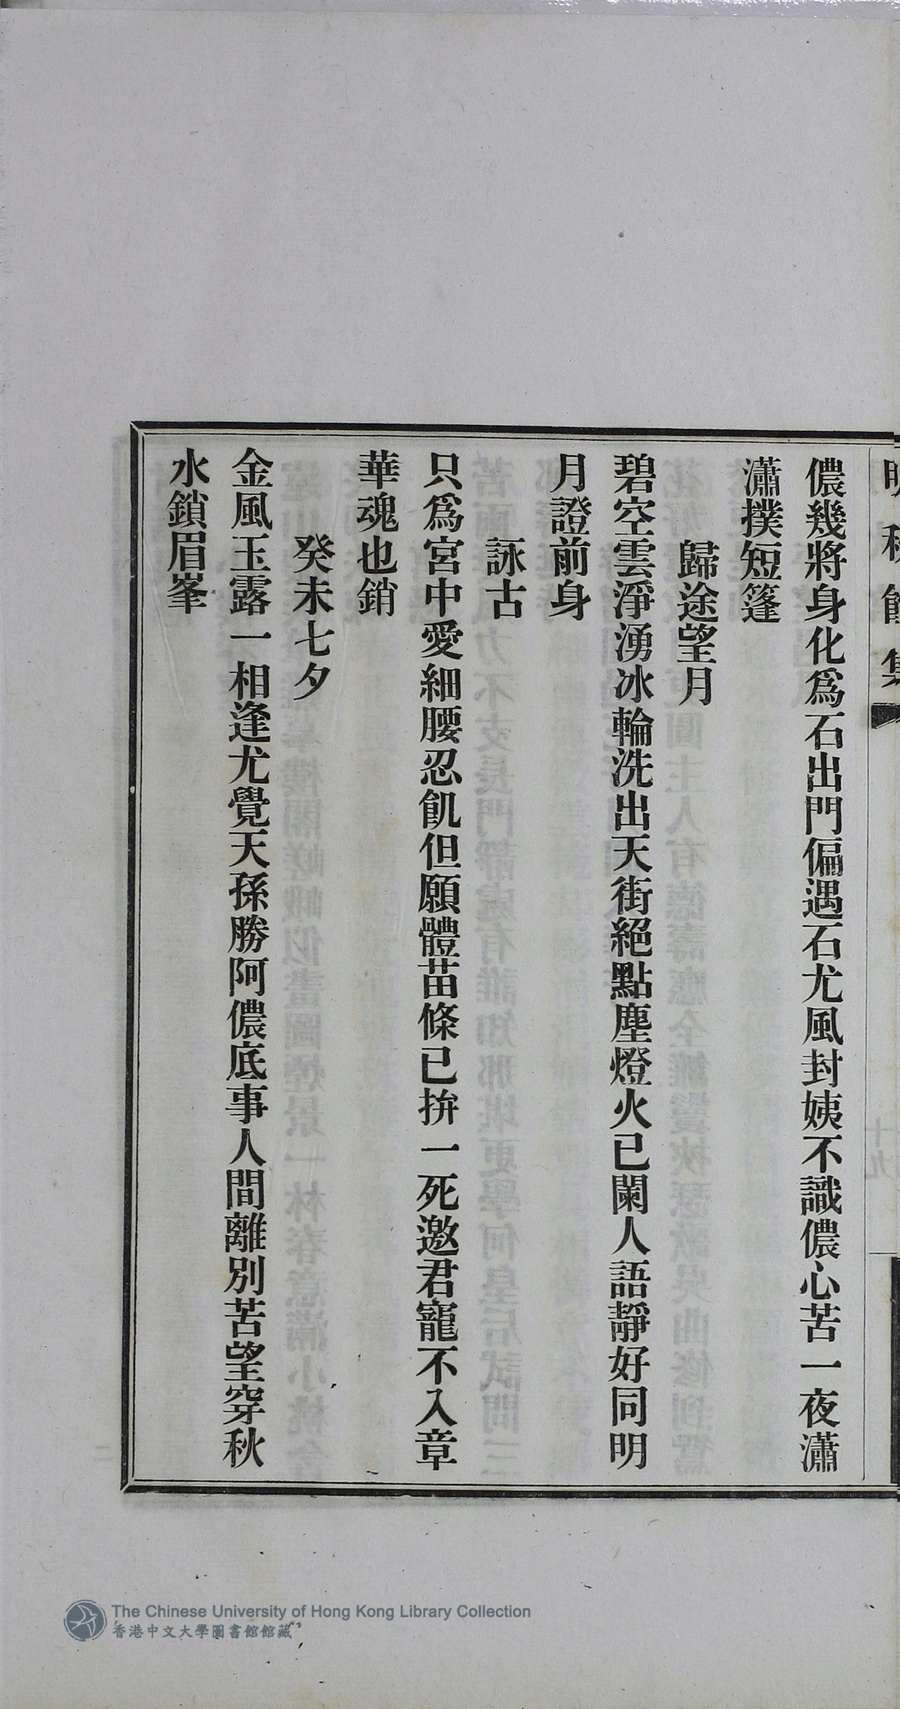 儂幾將身化爲石出門偏遇石尤風封姨不識儂心苦一夜瀟
瀟撲短篷
歸途望月
碧空雲淨湧冰輪洗出天街絕點塵燈火已闌人語靜好同明
月證前身
詠古
只爲宮中愛細腰忍飢但願體苗條已拚一死邀君寵不入章
華魂也銷
癸未七夕
金風玉露一相逢尤覺天孫勝阿儂底事人間離別苦望穿秋
水鎖眉峯
The Chinese University of Hong Kong Library Collection
香港中文大學圖書館館藏